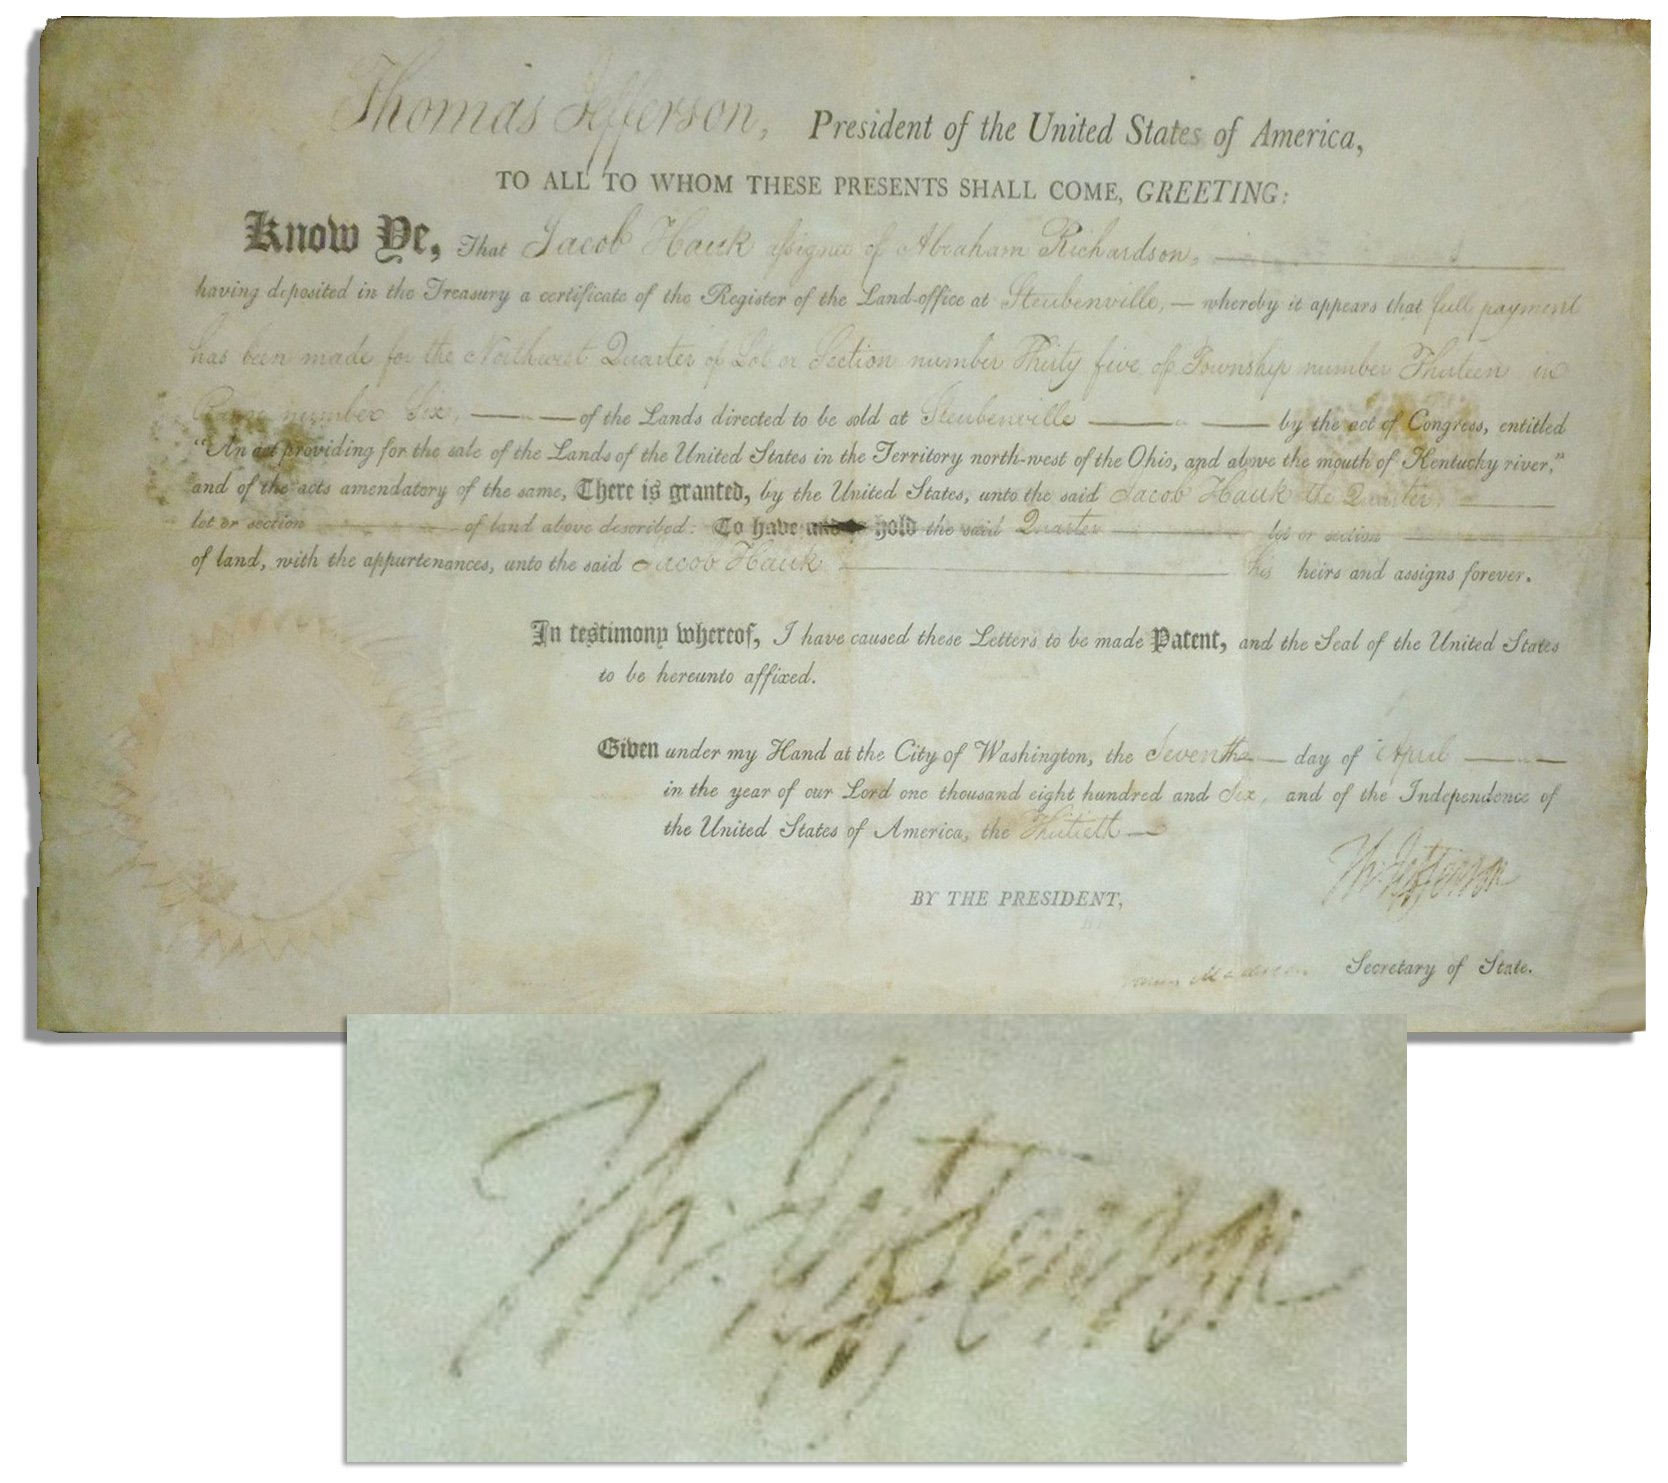 Thomas Jefferson, President of the United States of America,
TO ALL TO WHOM THESE PRESENTS SHALL COME, GREETING:
Know Ye, That Jacob Hauk assignee of Abraham Richardson,
having deposited in the Treasury a certificate of the Register of the Land-office at Steubenville, — whereby it appears that full payment
has been made for the Northwest Quarter of Lot or Section number Thirty five of Township number Thirteen in
Range number Six, — of the Lands directed to be sold at Steubenville — by the act of Congress, entitled
"An act providing for the sale of the Lands of the United States in the Territory north-west of the Ohio, and above the mouth of Kentucky river,"
and of the acts amendatory of the same, There is granted, by the United States, unto the said Jacob Hauk the Quarter,
lot or section — of land above described: To have and to hold the said Quarter — lot or section
of land, with the appurtenances, unto the said Jacob Hauk — his heirs and assigns forever.
In testimony whereof, I have caused these Letters to be made Patent, and the Seal of the United States
to be hereunto affixed.
Given under my Hand at the City of Washington, the Seventh — day of April —
in the year of our Lord one thousand eight hundred and Six, and of the Independence of
the United States of America, the Thirtieth —
Th: Jefferson
BY THE PRESIDENT,
James Madison Secretary of State.
Th: Jefferson